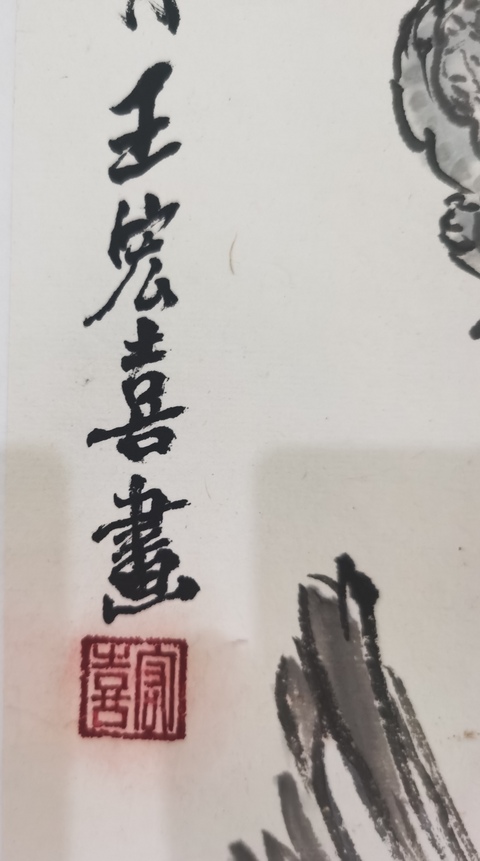 王宏喜畫
宏喜